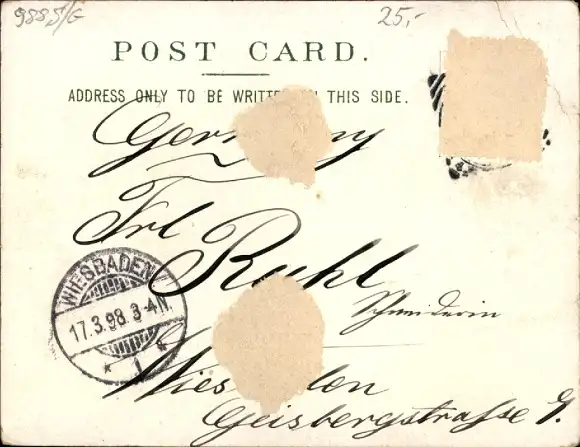 988 S/G
25,-
POST CARD.
ADDRESS ONLY TO BE WRITT N THIS SIDE.
Ger ny
Frl
Ruhl
Schneiderin
WIESBADEN
17.3.98. 3-4N.
* 1 *
Wies den
Geisbergstraße 9.